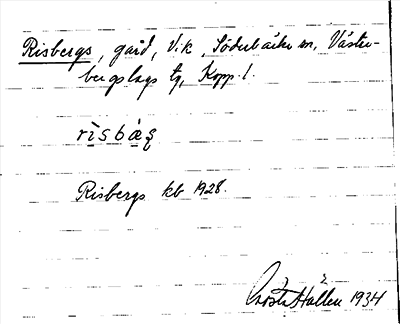 Risbergs, gård, V.k, Söderbärke sn, Väster-
bergslags tg, Kopp. l.
rìsbàʒ
Risbergs kb 1928.
Gösta Hallén 1934